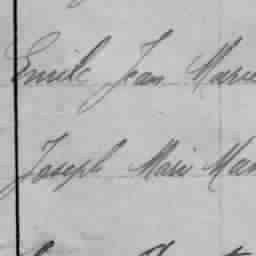 Emile Jean Marie
Joseph Marie